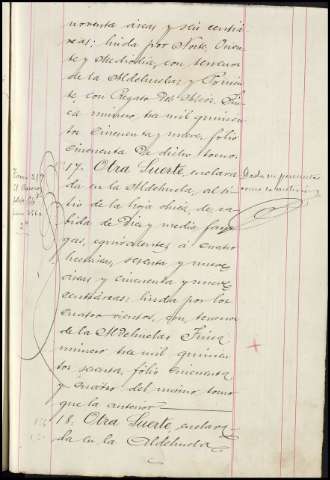 noventa áreas y seis centiá-
reas; linda por Norte, Orien-
te y Mediodia, con terrenos
de la Aldehuela, y Ponien-
te, con Regato del Fin-
ca número tres mil quinien-
tos cincuenta y nueve, folio
cincuenta de dicho tomo.
17. Otra Suerte, enclava-
da en la Aldehuela, al si-
tio de la hoja de ca-
bida de diez y media fane-
gas, equivalentes á cuatro
hectáreas, sesenta y nueve
áreas y cincuenta y nueve
centiáreas; linda por los
cuatro vientos, con terrenos
de la Aldehuela. Finca
número tres mil quinien-
tos sesenta, folio cincuenta
y cuatro del mismo tomo
que la anterior
18. Otra Suerte, enclava-
da en la Aldehuela